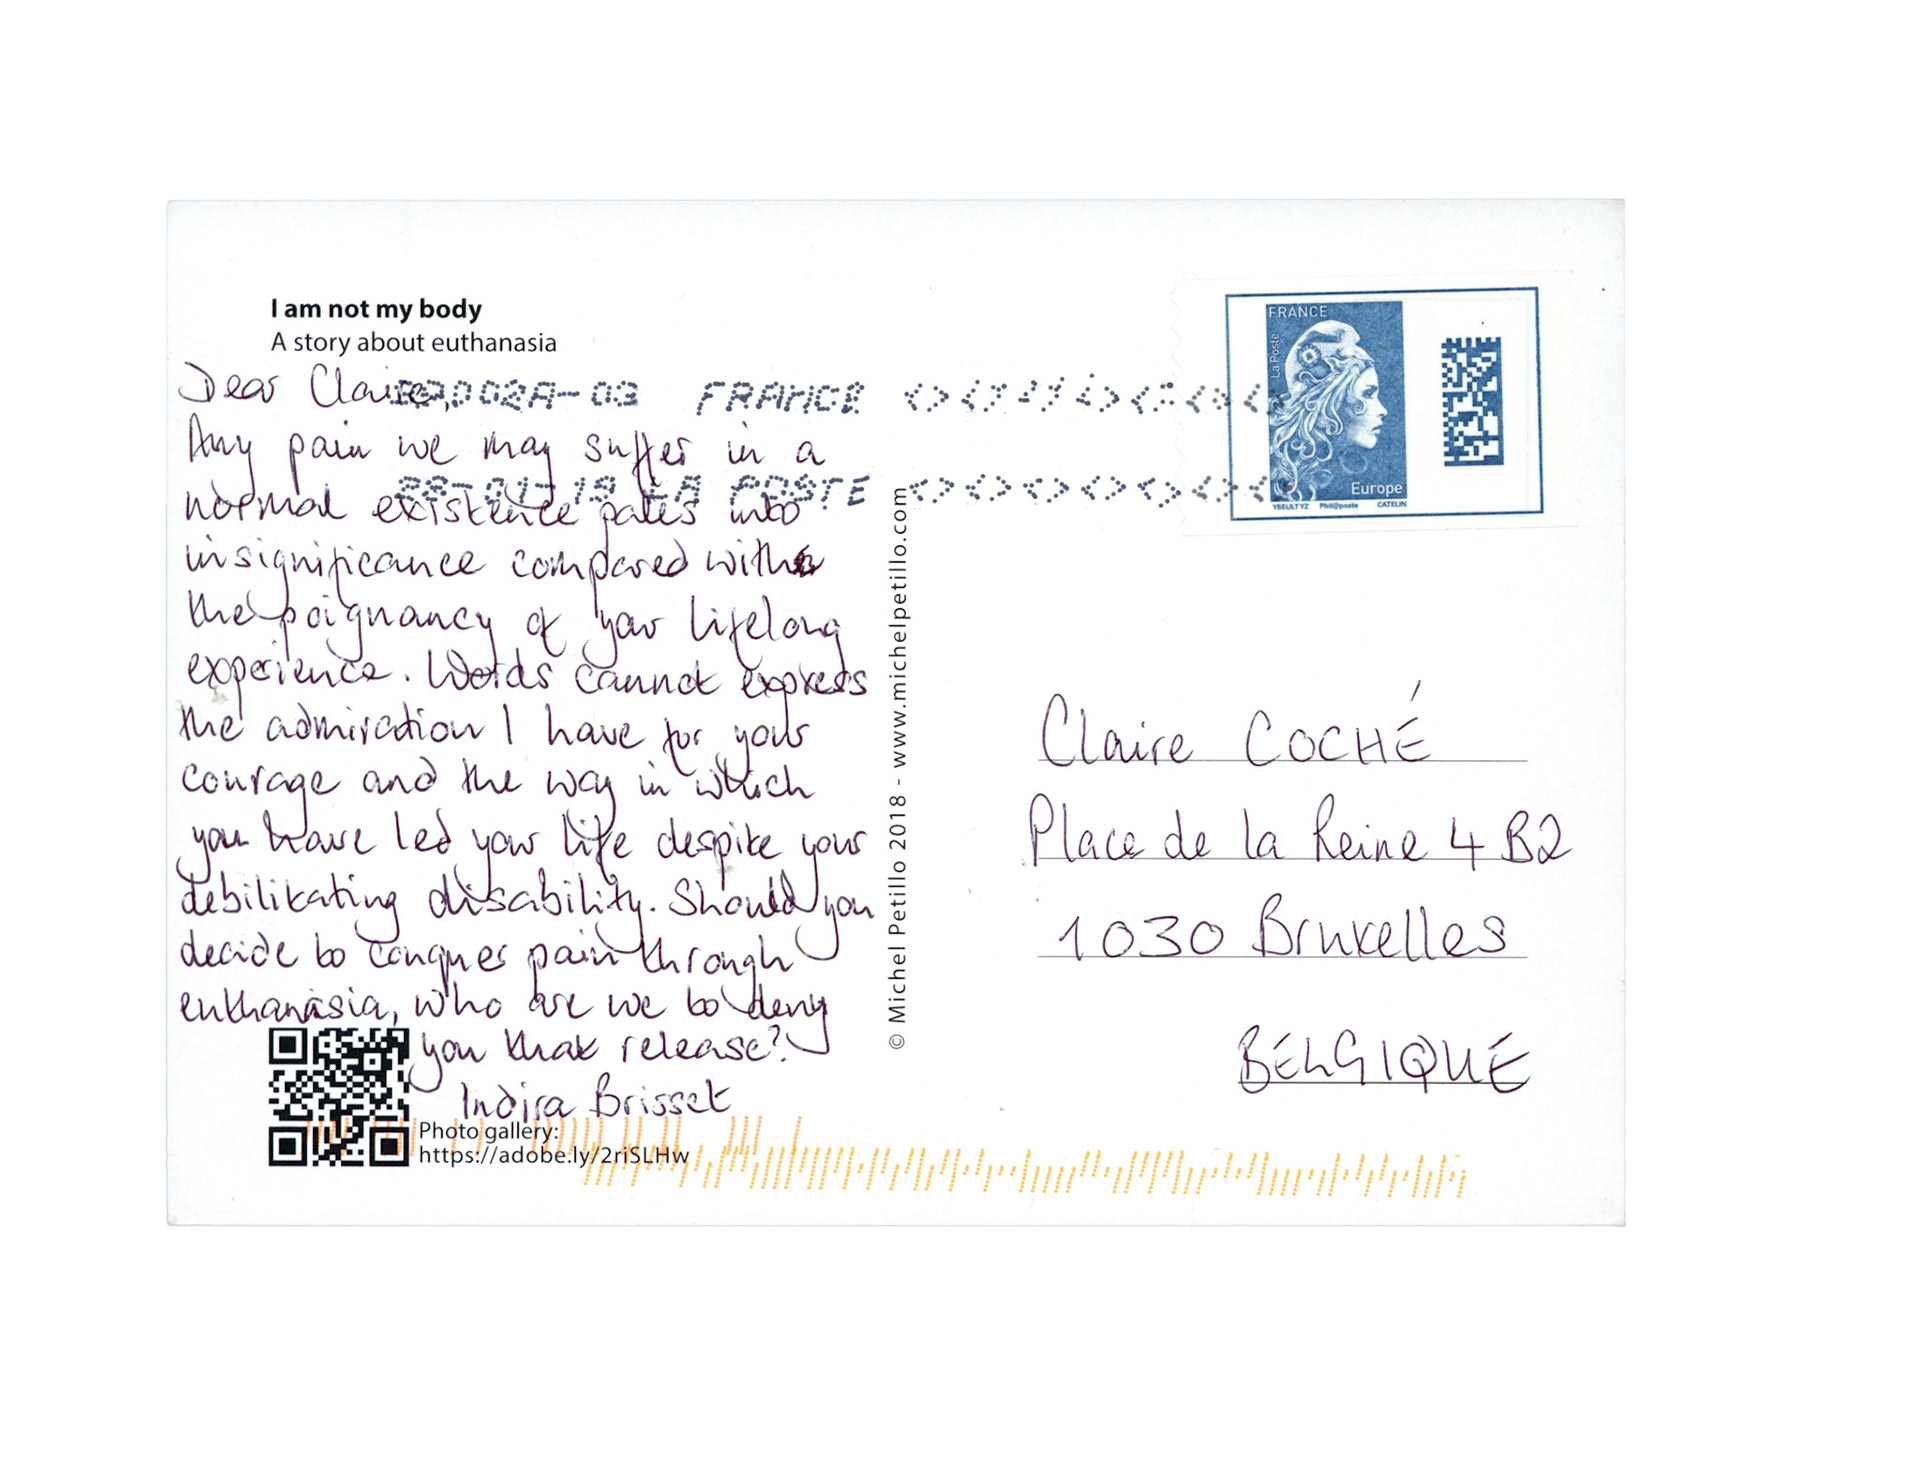 I am not my body
A story about euthanasia
Dear Claire,
Any pain we may suffer in a
normal existence pales into
insignificance compared with
the poignancy of your lifelong
experience. Words cannot express
the admiration I have for your
courage and the way in which
you have led your life despite your
debilitating disability. Should you
decide to conquer pain through
euthanasia, who are we to deny
you that release?
Indira Brisset
Photo gallery:
https://adobe.ly/2riSLHw
02A-03 FRANCE
28-01-19 LA POSTE
© Michel Petillo 2018 - www.michelpetillo.com
FRANCE
La Poste
Europe
YSEULT YZ Phil@poste CATELIN
Claire COCHÉ
Place de la Reine 4 B2
1030 Bruxelles
BELGIQUE